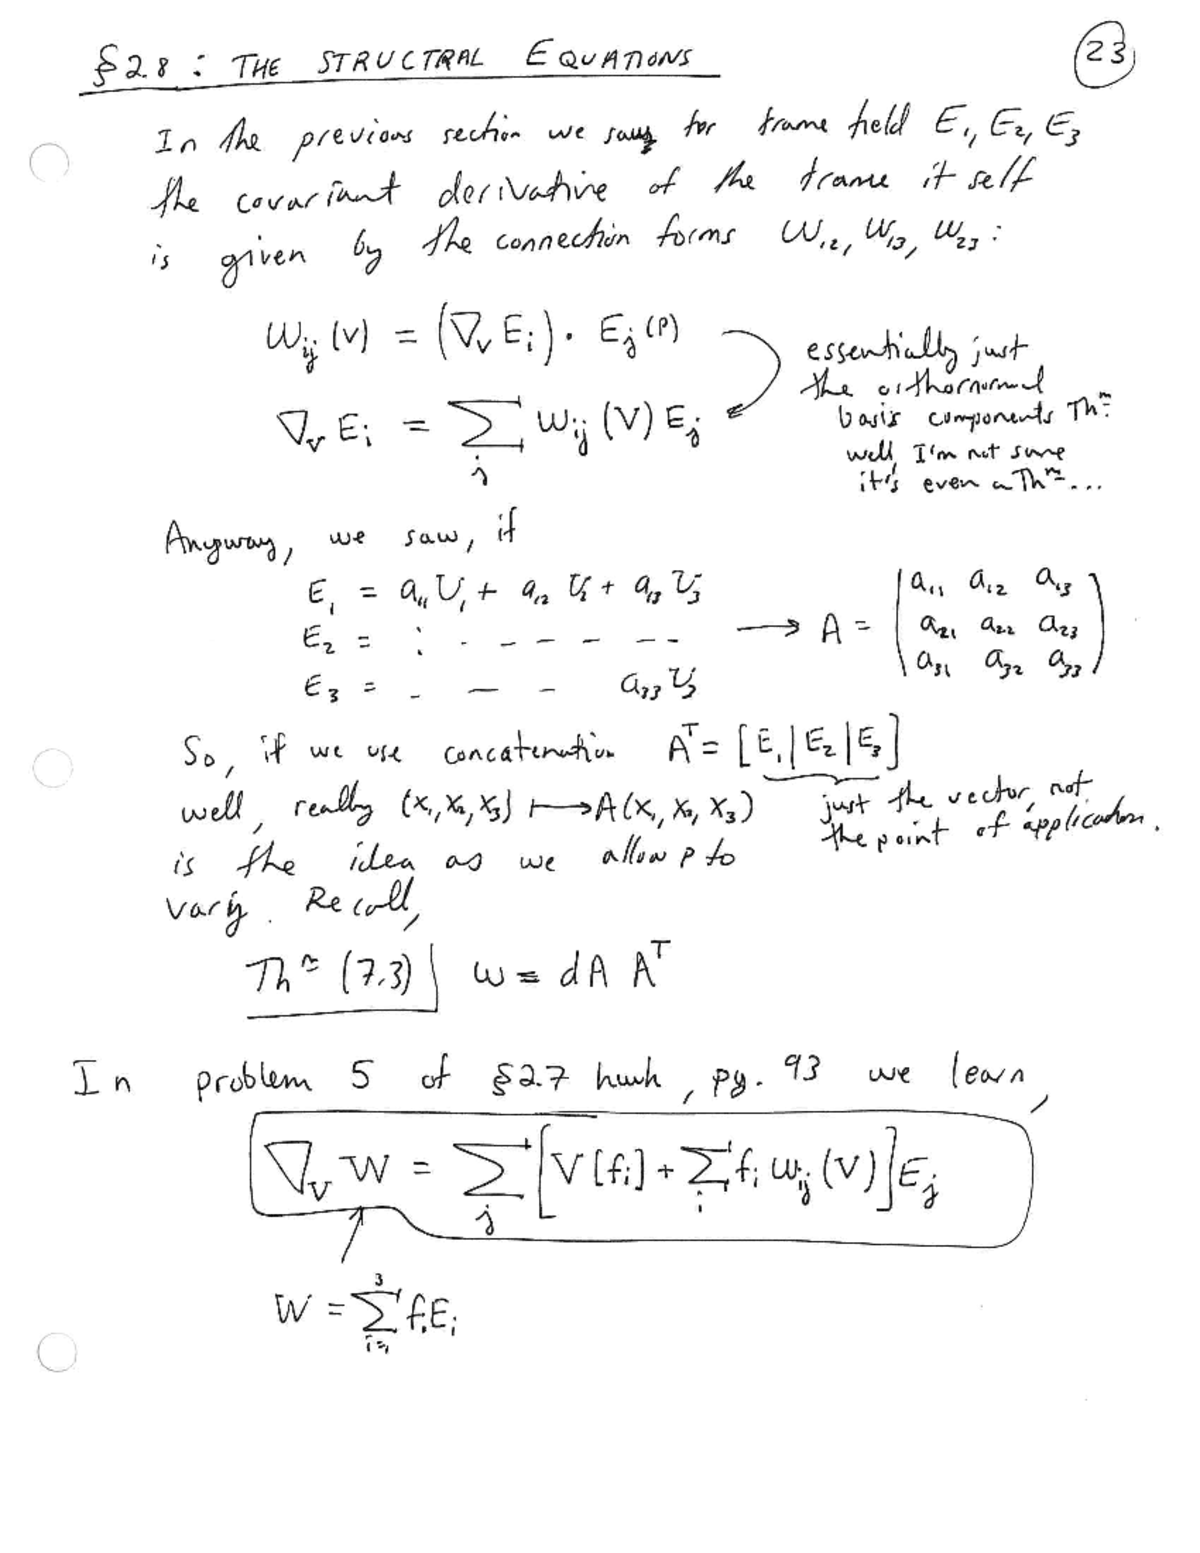 §2.8 : THE STRUCTRAL EQUATIONS
23
In the previous section we saw for frame field E₁, E₂, E₃
the covariant derivative of the frame it self
is given by the connection forms ω₁₂, ω₁₃, ω₂₃ :
ωᵢⱼ (v) = (∇ᵥ Eᵢ) · Eⱼ (p)
∇ᵥ Eᵢ = Σⱼ ωᵢⱼ (V) Eⱼ
essentially just
the orthornormal
basis components Thᵐ
well, I'm not sure
it's even a Thᵐ...
Anyway, we saw, if
E₁ = a₁₁ U₁ + a₁₂ U₂ + a₁₃ U₃
E₂ = : . - - - - - -
E₃ = . - - a₃₃ U₃
→ A = ( a₁₁ a₁₂ a₁₃
a₂₁ a₂₂ a₂₃
a₃₁ a₃₂ a₃₃ )
So, if we use concatenation Aᵀ = [E₁|E₂|E₃]
well, really (x₁, x₂, x₃) ↦ A(x₁, x₂, x₃)
is the idea as we allow p to
vary. Recall,
just the vector, not
the point of application.
Thᵐ (7.3) | ω = dA Aᵀ
In problem 5 of §2.7 hwk, pg. 93 we learn,
∇ᵥ W = Σⱼ [V[fⱼ] + Σᵢ fᵢ ωᵢⱼ (V)] Eⱼ
W = Σ³ᵢ₌₁ fᵢEᵢ